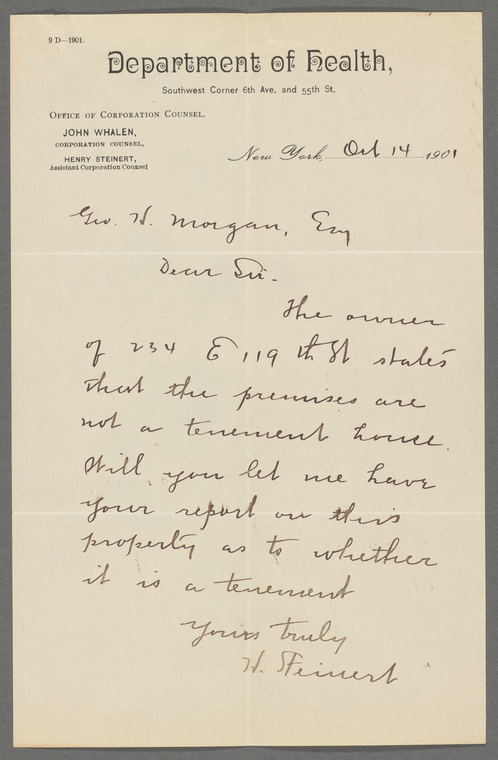 9 D—1901.
Department of Health,
Southwest Corner 6th Ave. and 55th St.
OFFICE OF CORPORATION COUNSEL.
JOHN WHALEN,
CORPORATION COUNSEL,
HENRY STEINERT,
Assistant Corporation Counsel
New York, Oct 14 1901
Geo. W. Morgan, Esq
Dear Sir.
The owner
of 234 E 119 th St states
that the premises are
not a tenement house.
Will you let me have
your report on this
property as to whether
it is a tenement
Yours truly
H. Steinert